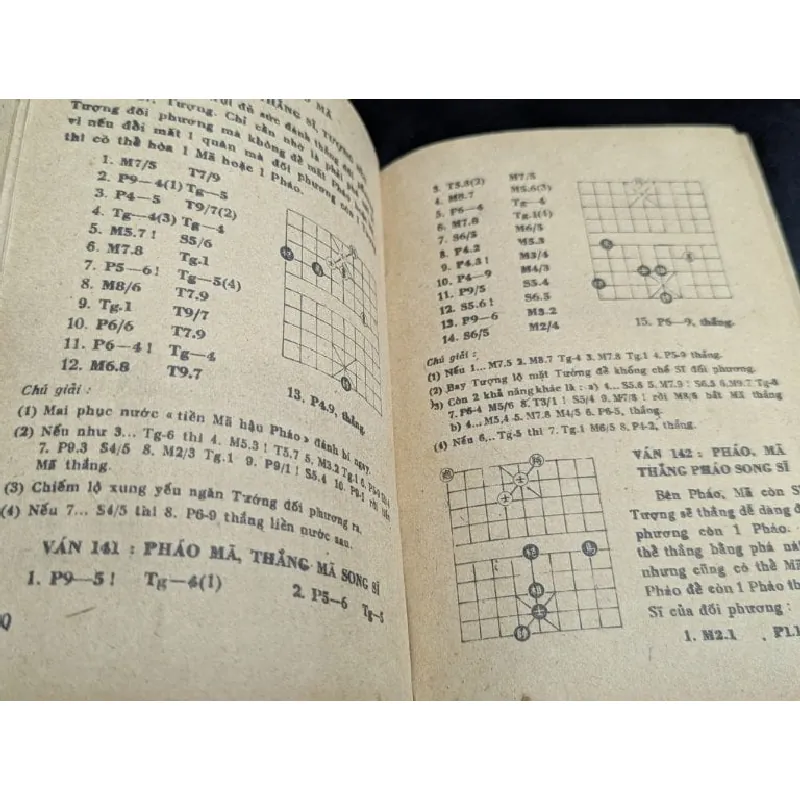 THẮNG SĨ, TƯỢNG MÃ
Tượng. đủ sức đánh thắng
Tượng đối phương mà không để mất Pháo
vì nếu đổi mất 1 quân mà đối phương còn 1
thì có thể hòa 1 Mã hoặc 1 Pháo.
1. M7/5 T7/9
2. P9—4(1) Tg—5
3. P4—5 T9/7(2)
4. Tg—4(3) Tg—4
5. M5.7! S5/6
6. M7.8 Tg.1
7. P5—6! Tg—5(4)
8. M8/6 T7.9
9. Tg.1 T9/7
10. P6/6 T7.9
11. P6—4! Tg—4
12. M6.8 T9.7
13. P4.9, thắng.
Chú giải :
(1) Mai phục nước « tiền Mã hậu Pháo » đánh bí ngay.
(2) Nếu như 3... Tg-6 thì 4. M5.3! T5.7 5. M3.2 Tg.1 6.
7. P9.3 S4/5 8. M2/3 Tg.1 9. P9/1! S5.4 10. P9-1 rồi
Mã thắng.
(3) Chiếm lộ xung yếu ngăn Tướng đối phương ra.
(4) Nếu 7... S4/5 thì 8. P6-9 thắng liền nước sau.
VÁN 141 : PHÁO MÃ, THẮNG MÃ SONG SĨ
1. P9—5! Tg—4(1)
2. P5—6 Tg—5
3. T5.3(2) M7/5
4. M8.7 M5.6(3)
5. P6—4 Tg—4
6. M7.8 Tg.1(4)
7. S6/5 M6/5
8. P4.2 M5.3
9. P4.3! M3/4
10. P4—9 M4/3
11. P9/5 S5.4
12. S5.6! S6.5
13. P9—6 M3.2
14. S6/5 M2/4
15. P6—9, thắng.
Chú giải :
(1) Nếu 1... M7.5 2. M8.7 Tg-4 3. M7.8 Tg.1 4. P5-9 thắng.
(2) Bay Tượng lộ mặt Tướng để khống chế Sĩ đối phương.
(3) Còn 2 khả năng khác là : a) 4... S5.6 5. M7.9! S6.5 6. M9.7 Tg-5
7. P6-4 M5/6 8. T3/1! S5/4 9. M7/8! rồi M8/6 bắt Mã thắng
b) 4... M5.4 5. M7.8 M4/5 6. P6-5, thắng.
(4) Nếu 6... Tg-5 thì 7. Tg.1 M6/5 8. P4-2, thắng.
VÁN 142 : PHÁO, MÃ
THẮNG PHÁO SONG SĨ
Bên Pháo, Mã còn Sĩ
Tượng sẽ thắng dễ dàng đ
phương còn 1 Pháo.
thể thắng bằng phá nát
nhưng cũng có thể Mã
Pháo để còn 1 Pháo th
Sĩ của đối phương :
1. M2.1 P1.1